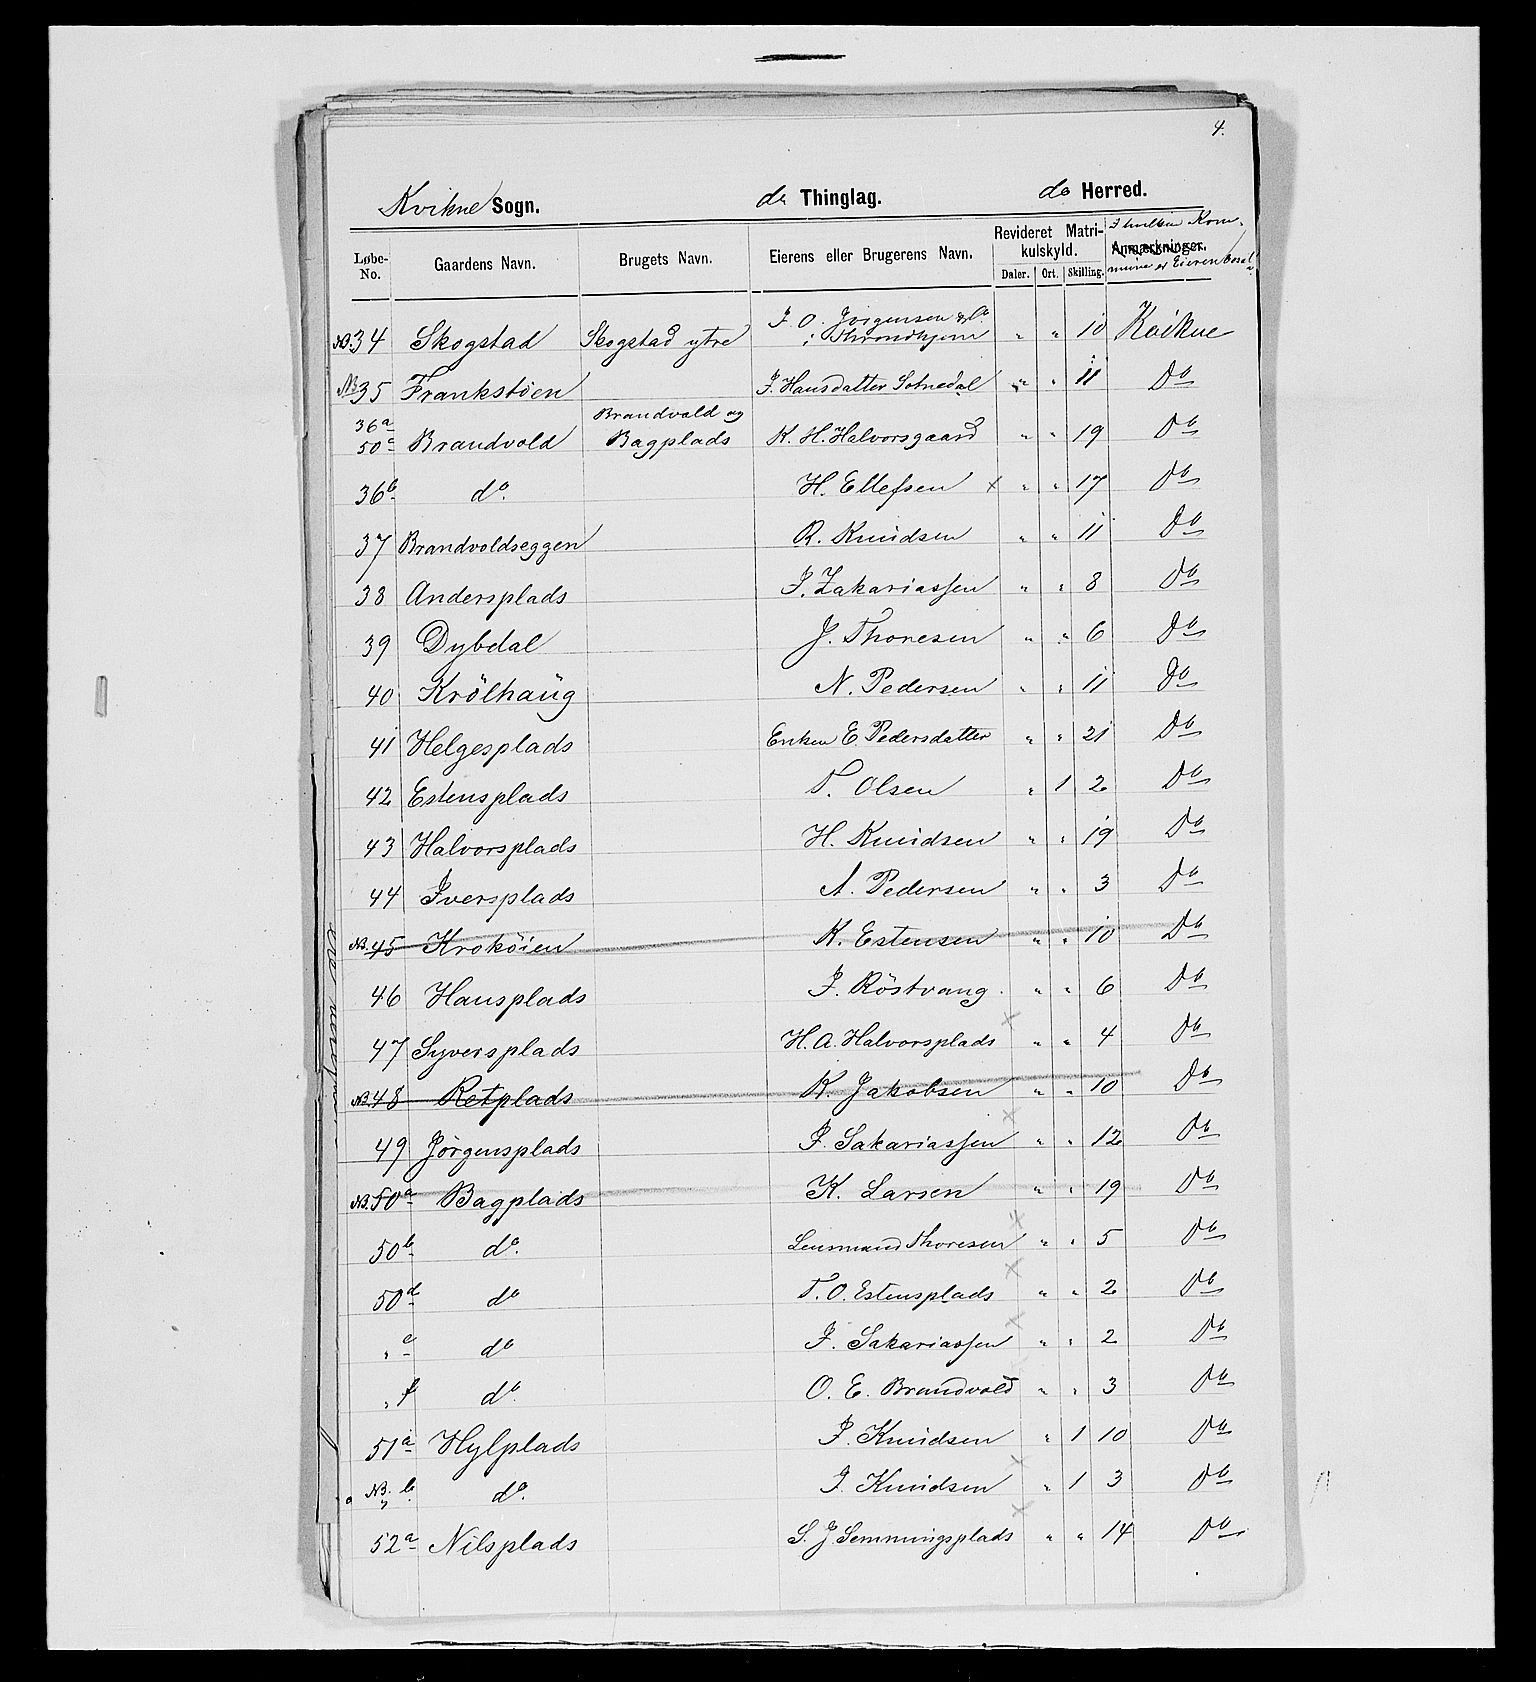 4.
Kvikne Sogn. do Thinglag. do Herred.
Løbe-No. Gaardens Navn. Brugets Navn. Eierens eller Brugerens Navn. Revideret Matrikulskyld. Daler. Ort. Skilling. Anmærkninger. I hvilken Kommune er Eieren bosat
NB. 34 Skogstad Skogstad ytre J. O. Jörgensen & Co i Throndhjem " " 10 Kvikne
NB 35 Frankstöen J. Hansdatter Sotnedal " " 11 Do
36a 50c Brandvold Brandvold og Bagplads K. H. Halvorsgaard " " 19 Do
36b do. H. Ellefsen x " " 17 Do
37 Brandvoldseggen R. Knudsen " " 11 Do
38 Andersplads J. Zakariassen " " 8 Do
39 Dybdal J. Thoresen " " 6 Do
40 Krölhaüg N. Pedersen " " 11 Do
41 Helgesplads Enken E. Pedersdatter " " 21 Do
42 Estensplads T. Olsen " 1 2 Do
43 Halvorsplads H. Knudsen " " 19 Do
44 Iversplads A. Pedersen " " 3 Do
NB. 45 Kroköien K. Estensen " " 10 Do
46 Hansplads J. Röstvang. " " 6 Do
47 Syversplads H. A. Halvorsplads x " " 4 Do
NB. 48 Retplads K. Jakobsen " " 10 Do
49 Jörgensplads J. Sakariassen x " " 12 Do
NB. 50a Bagplads K. Larsen " " 19 Do
50b do. Lensmand Thoresen x " " 5 Do
50d do T. O. Estensplads x " " 2 Do
" e do J. Sakariassen x " " 2 Do
" f do. O. E. Brandvold " " 3 Do
51a Hylplads J. Knudsen " 1 10 Do
NB. " b. do. J. Knudsen x " 1 3 Do
52a Nilsplads S. J Semmingsplads x " " 14 Do